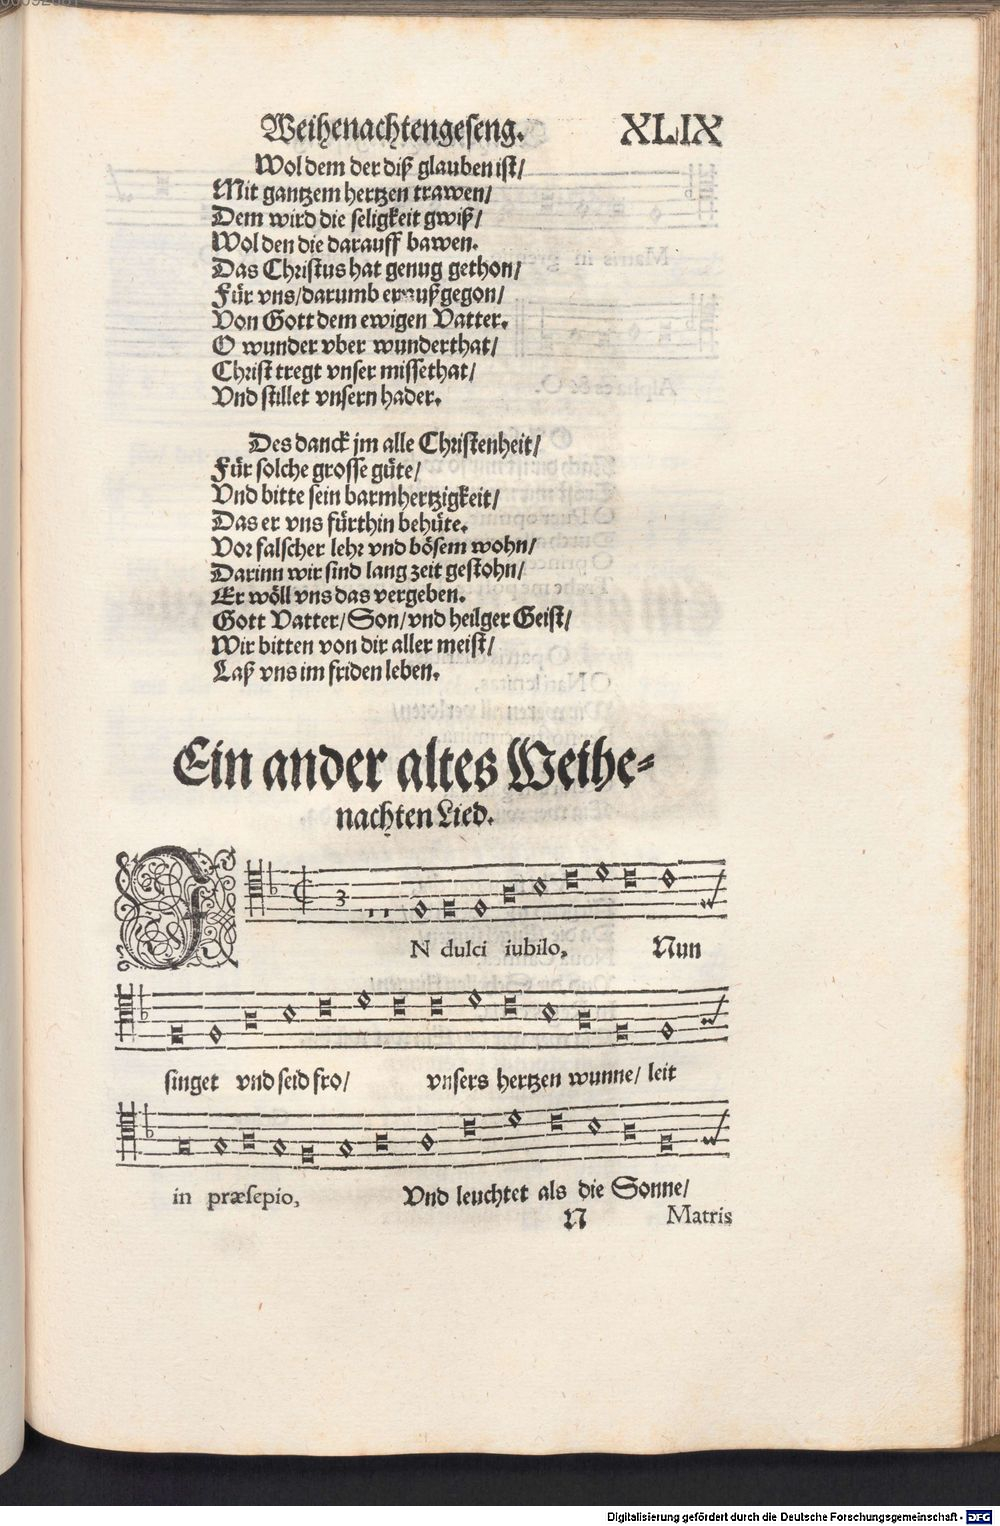 Weihenachtengeseng. XLIX
Wol dem der diß glauben ist/
Mit gantzem hertzen trawen/
Dem wird die seligkeit gwiß/
Wol den die darauff bawen.
Das Christus hat genug gethon/
Für vns/darumb er außgegon/
Von Gott dem ewigen Vatter.
O wunder vber wunderthat/
Christ tregt vnser missethat/
Vnd stillet vnsern hader.
Des danck jm alle Christenheit/
Für solche grosse güte/
Vnd bitte sein barmhertzigkeit/
Das er vns fürthin behüte.
Vor falscher lehr vnd bösem wohn/
Darinn wir sind lang zeit gestohn/
Er wöll vns das vergeben.
Gott Vatter/Son/vnd heilger Geist/
Wir bitten von dir aller meist/
Laß vns im friden leben.
Ein ander altes Weihe-
nachten Lied.
3
IN dulci iubilo, Nun
singet vnd seid fro/ vnsers hertzen wunne/ leit
in præsepio, Vnd leuchtet als die Sonne/
N Matris
Digitalisierung gefördert durch die Deutsche Forschungsgemeinschaft - DFG